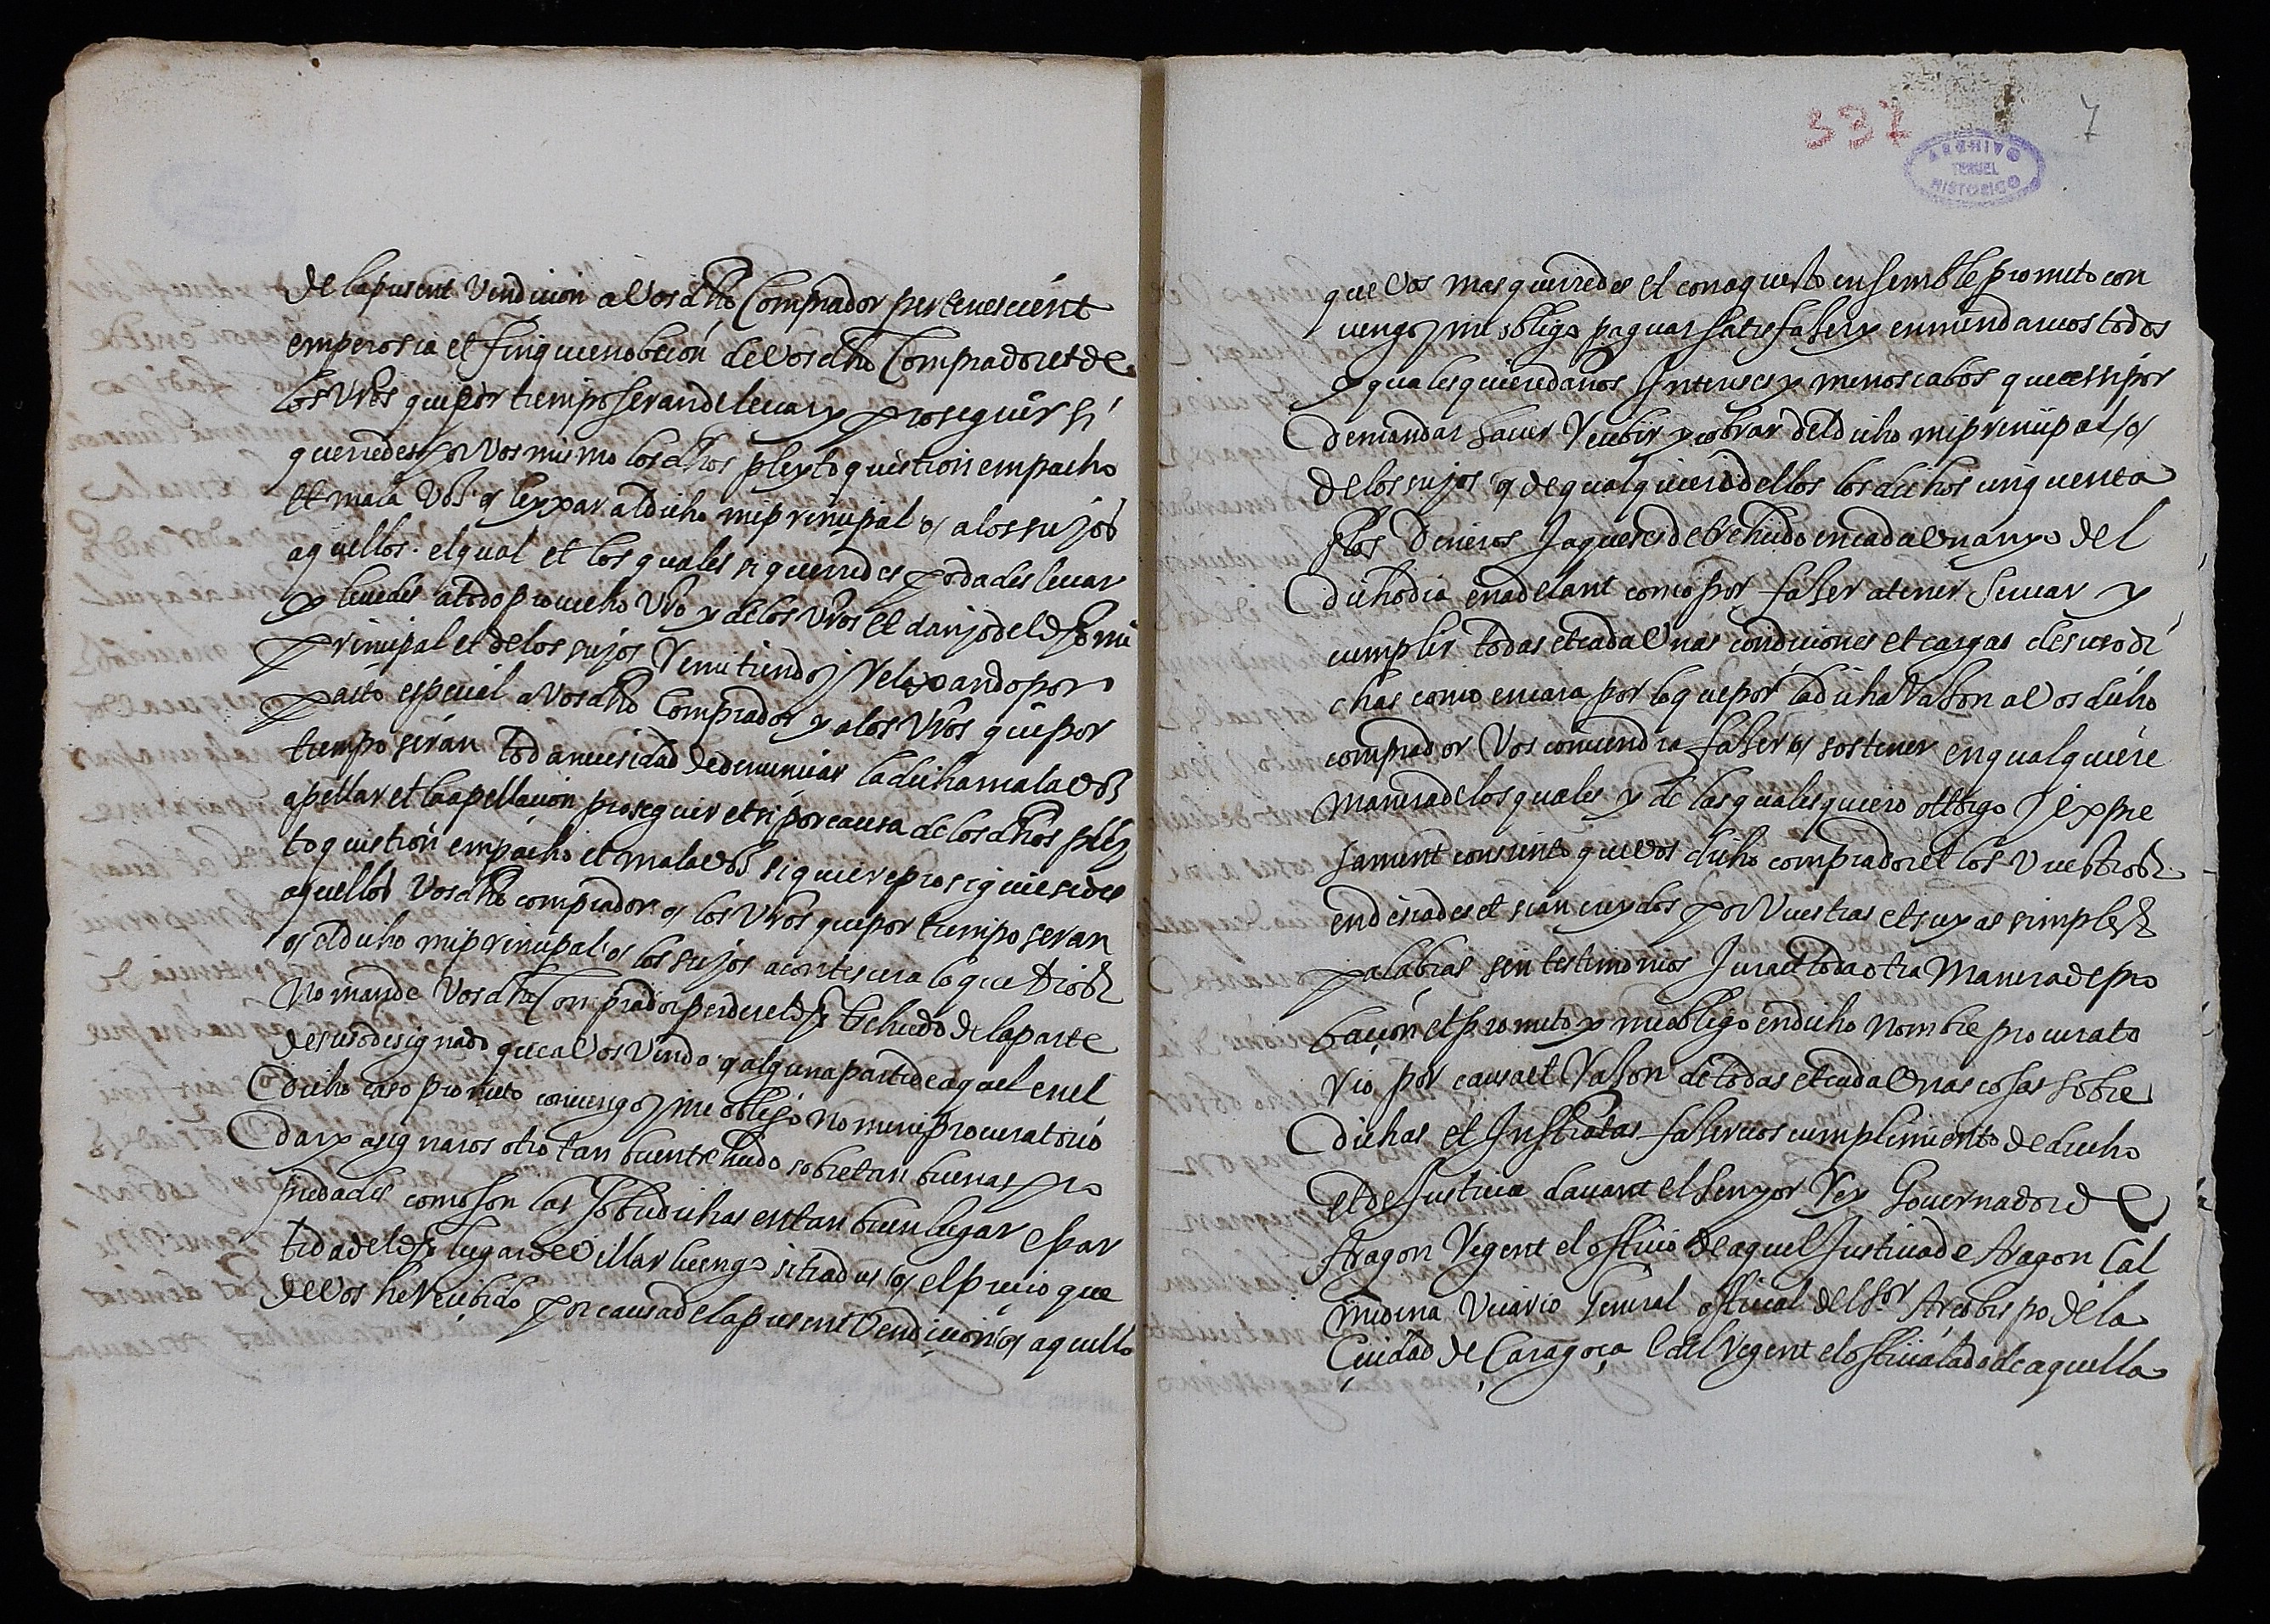 de la present vendicion a vos dho Comprador pertenescient
empero sia et finque en obcion de vos dho Comprador et de
los vros que por tiempo seran de levar y proseguir si
querredes por vos mismo los dhos pleyto question empacho
et mala voz o lexar al dicho mi principal o a los sujos
aquellos. el qual et los quales si querredes podades levar
y levedes a todo provecho vro y de los vros et danjo del dho mi
principal et de los sujos Remitiendo y Relaxando por
pacto especial a vos dho Comprador y a los vros que por
tiempo seran toda necesidad de denunciar la dicha mala voz
apellar et la apellacion proseguir et si por causa de los dhos pley
to question empacho et mala voz siquiere prosiguiesedes
aquellos vos dho comprador o los vros que por tiempo seran
o el dicho mi principal o los sujos acontescera lo que Dios
no mande vos dho Comprador perder el dho trehudo de la parte
desuso designado que a vos vendo o alguna partida de aquel en el
dicho caso prometo convengo y me obligo nomine procuratorio
dar y asignaros otro tan buen trehudo sobre tan buenas pro
piedades como son las sobredichas en tan buen lugar e par
tida del dho lugar de Villarluengo sitiadas o el precio que
de vos he Recibido por causa de la present vendicion o aquello
337 7
ARCHIVO
TERUEL
HISTORICO
que vos mas querredes et con aquesto ensemble prometo con
vengo y me obligo paguar satisfaser y enmendarvos todos
y qualesquiere daños Intereses y menoscabos que assi por
demandar haver Recebir y cobrar del dicho mi principal o
de los sujos o de qualquiere dellos los dichos cinquenta
slds dineros Jaqueses de trehudo en cada un anyo del
dicho dia en adelant como por faser atener servar y
cumplir todas et cada unas condiciones et cargas desuso di
chas como encara por lo que por la dicha Rason a vos dicho
comprador vos convendra faser o sostener en qualquiere
manera de los quales y de las quales quiero ottorgo y expre
sament consiento que vos dicho comprador et los vuestros
end siades et sian creydos por vuestras et suyas simples
palabras sen testimonios Jura et toda otra manera de pro
bacion et prometo y me obligo en dicho nombre procurato
rio por causa et Rason de todas et cada unas cosas sobre
dichas et Infrascritas faservos cumplimiento de drecho
et de Justicia davant el senyor Rey Governador de
Aragon Regent el officio de aquel Justicia de Aragon Cal
medina vicario General official del Sor Arcobispo de la
Ciudad de Caragoça e del Regent el officialado de aquella